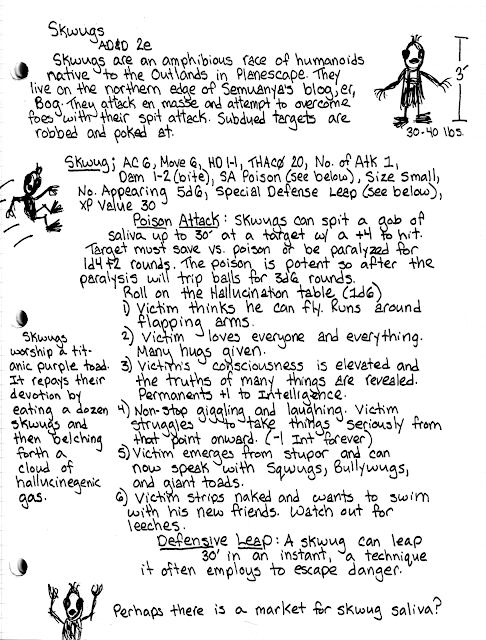 Skwugs
AD&D 2e
Skwugs are an amphibious race of humanoids
native to the Outlands in Planescape. They
live on the northern edge of Semuanya's blog, er,
Bog. They attack en masse and attempt to overcome
foes with their spit attack. Subdued targets are
robbed and poked at.
3'
30-40 lbs.
Skwug; AC 6, Move 6, HD 1-1, THAC0 20, No. of Atk 1,
Dam 1-2 (bite), SA Poison (see below), Size Small,
No. Appearing 5d6, Special Defense Leap (see below),
XP Value 30
Poison Attack: Skwugs can spit a gob of
saliva up to 30' at a target w/ a +4 to hit.
Target must save vs. poison or be paralyzed for
1d4+2 rounds. The poison is potent so after the
paralysis will trip balls for 3d6 rounds.
Roll on the Hallucination table (1d6)
1) Victim thinks he can fly. Runs around
flapping arms.
2) Victim loves everyone and everything.
Many hugs given.
3) Victim's consciousness is elevated and
the truths of many things are revealed.
Permanents +1 to Intelligence.
4) Non-stop giggling and laughing. Victim
struggles to take things seriously from
that point onward. (-1 Int forever)
5) Victim emerges from stupor and can
now speak with Sqwugs, Bullywugs,
and giant toads.
6) Victim strips naked and wants to swim
with his new friends. Watch out for
leeches.
Skwugs
worship a tit-
anic purple toad.
It repays their
devotion by
eating a dozen
skwugs and
then belching
forth a
cloud of
hallucinegenic
gas.
Defensive Leap: A skwug can leap
30' in an instant, a technique
it often employs to escape danger.
Perhaps there is a market for skwug saliva?